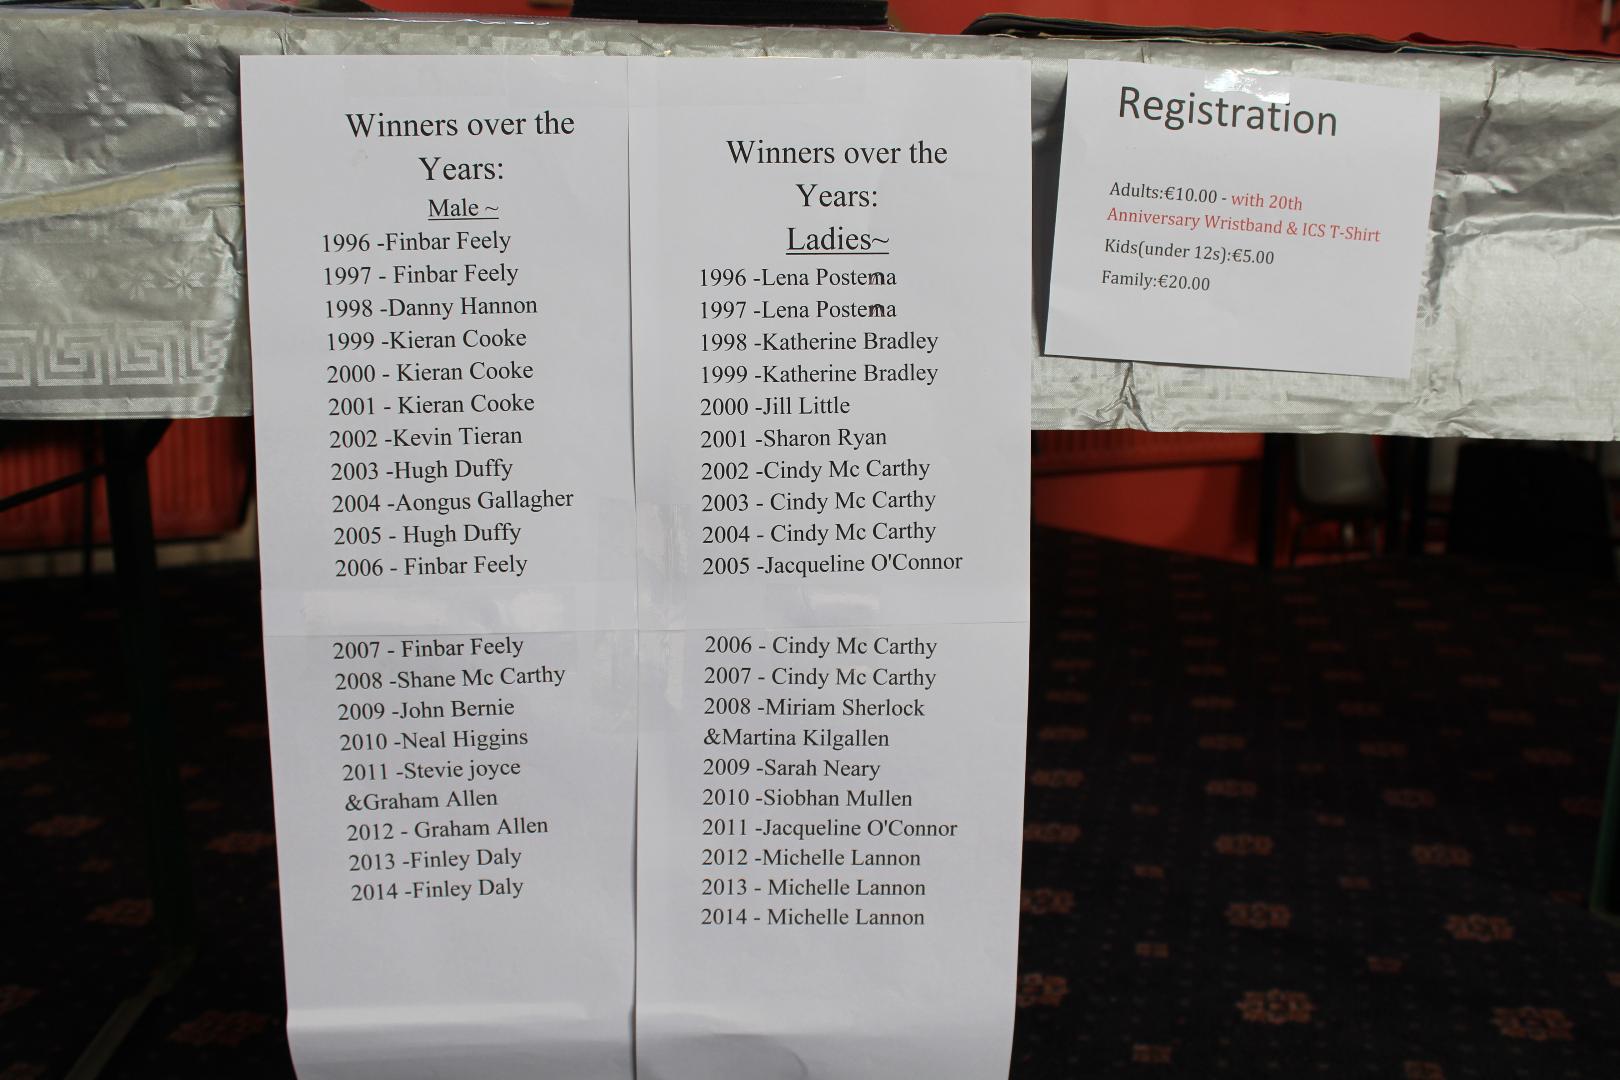 Winners over the
Years:
Male ~
1996 -Finbar Feely
1997 - Finbar Feely
1998 -Danny Hannon
1999 -Kieran Cooke
2000 - Kieran Cooke
2001 - Kieran Cooke
2002 -Kevin Tieran
2003 -Hugh Duffy
2004 -Aongus Gallagher
2005 - Hugh Duffy
2006 - Finbar Feely
2007 - Finbar Feely
2008 -Shane Mc Carthy
2009 -John Bernie
2010 -Neal Higgins
2011 -Stevie joyce
&Graham Allen
2012 - Graham Allen
2013 -Finley Daly
2014 -Finley Daly
Winners over the
Years:
Ladies~
1996 -Lena Postema
1997 -Lena Postema
1998 -Katherine Bradley
1999 -Katherine Bradley
2000 -Jill Little
2001 -Sharon Ryan
2002 -Cindy Mc Carthy
2003 - Cindy Mc Carthy
2004 - Cindy Mc Carthy
2005 -Jacqueline O'Connor
2006 - Cindy Mc Carthy
2007 - Cindy Mc Carthy
2008 -Miriam Sherlock
&Martina Kilgallen
2009 -Sarah Neary
2010 -Siobhan Mullen
2011 -Jacqueline O'Connor
2012 -Michelle Lannon
2013 - Michelle Lannon
2014 - Michelle Lannon
Registration
Adults:€10.00 - with 20th
Anniversary Wristband & ICS T-Shirt
Kids(under 12s):€5.00
Family:€20.00